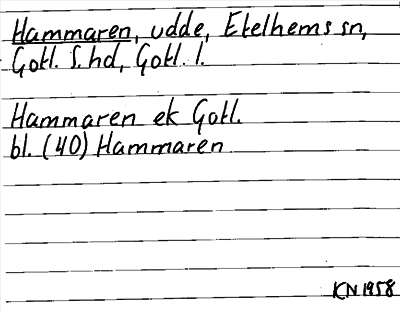 Hammaren, udde, Etelhems sn,
Gotl. S. hd, Gotl. l.
Hammaren ek Gotl.
bl. (40) Hammaren
KN 1958